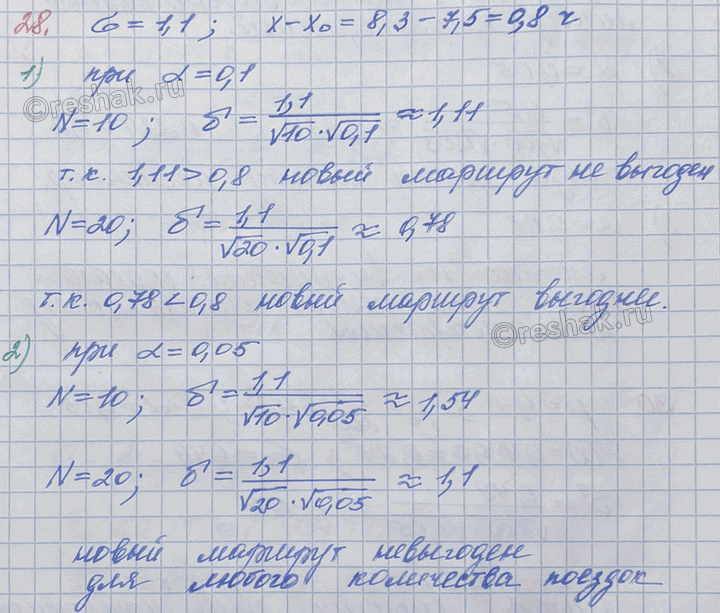 28. σ = 1,1 ; x - x₀ = 8,3 - 7,5 = 0,8 ч
1) при α = 0,1
©reshak.ru
N = 10 ; δ = 1,1 / (√10 · √0,1) ≈ 1,11
т.к. 1,11 > 0,8 новый маршрут не выгоден
N = 20; δ = 1,1 / (√20 · √0,1) ≈ 0,78
т.к. 0,78 < 0,8 новый маршрут выгоднее.
©reshak.ru
2) при α = 0,05
N = 10; δ = 1,1 / (√10 · √0,05) ≈ 1,54
N = 20; δ = 1,1 / (√20 · √0,05) ≈ 1,1
новый маршрут невыгоден
для любого количества поездок